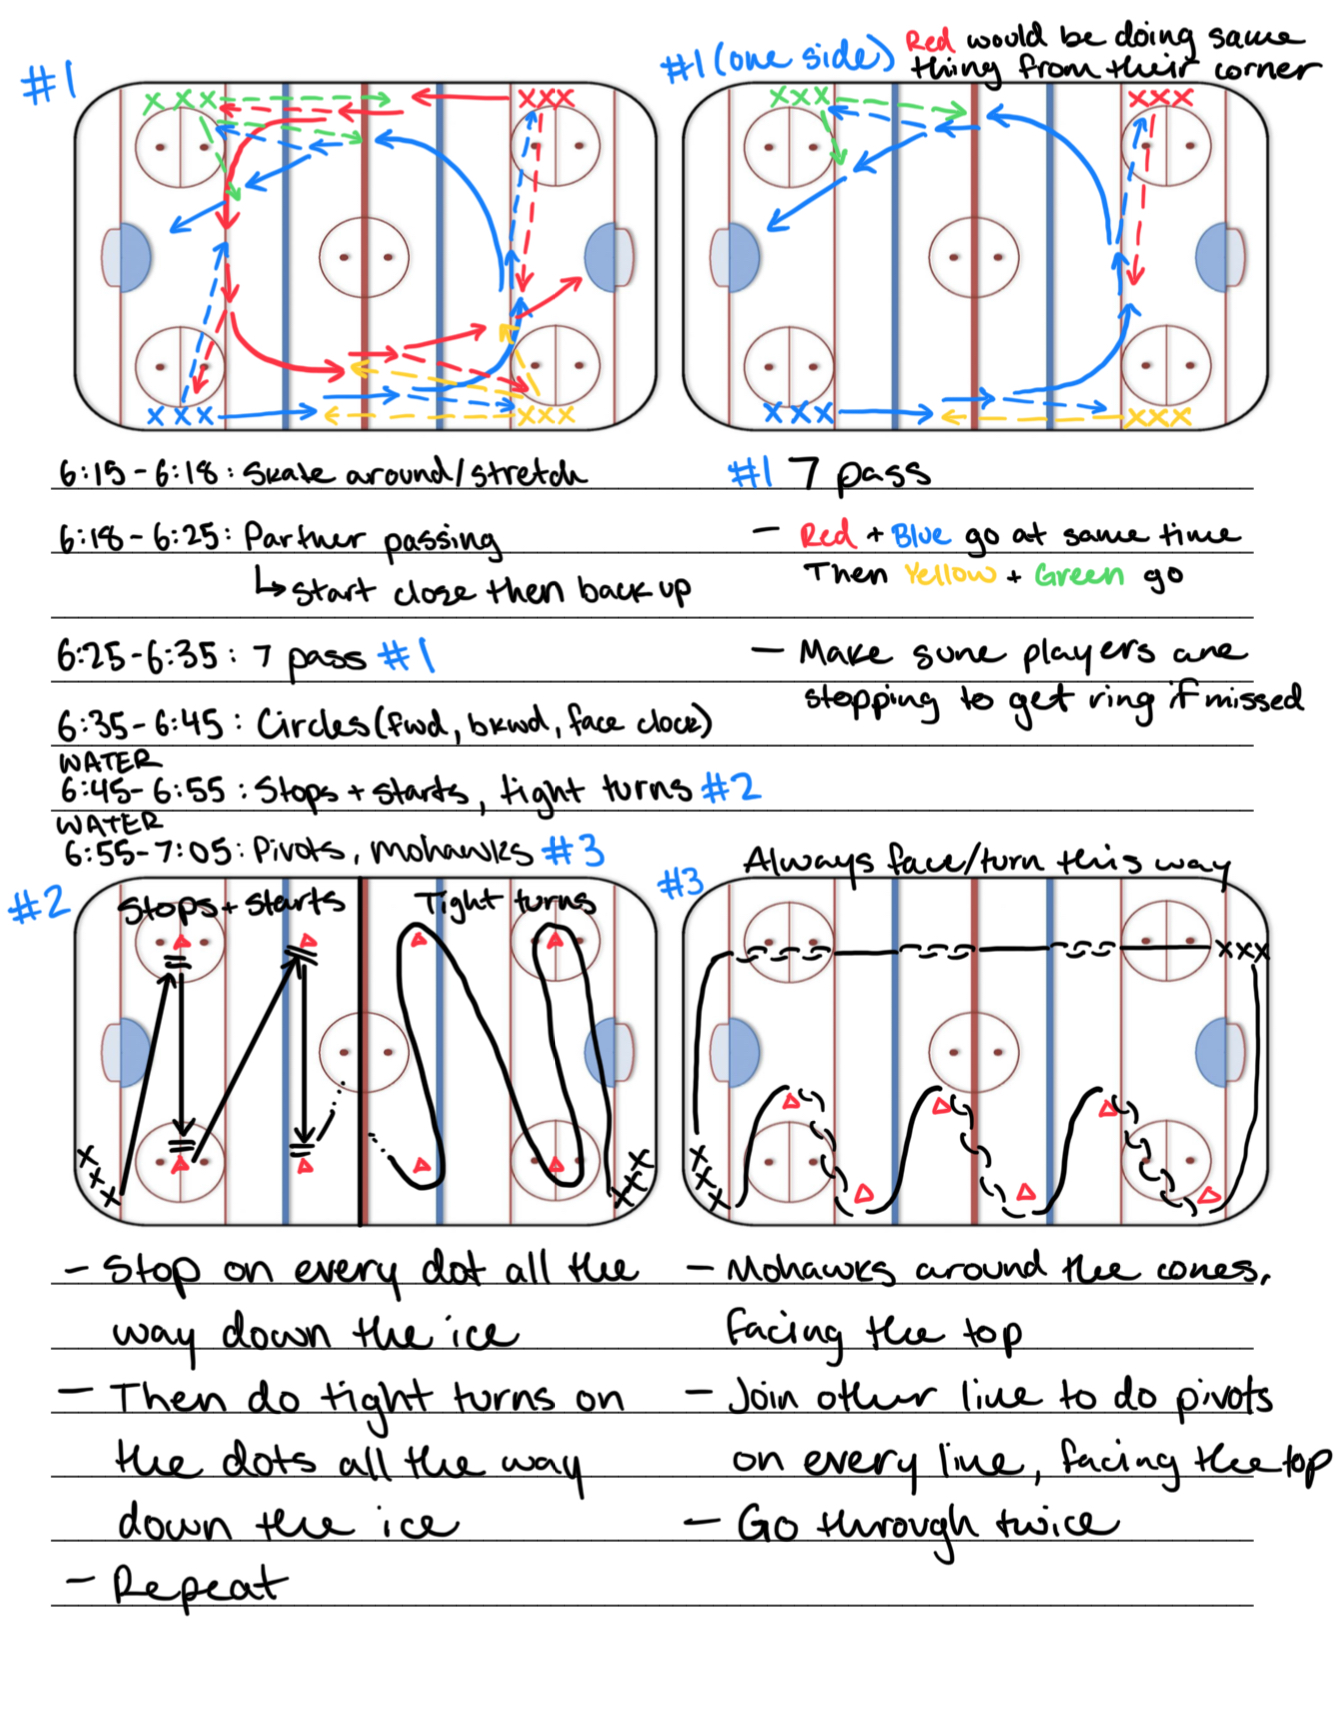 #1
#1 (one side) Red would be doing same
thing from their corner
X X X
XXX
XXX
XXX
X X X
XXX
XXX
XXX
6:15-6:18: Skate around/stretch
6:18-6:25: Partner passing
↳ start close then back up
6:25-6:35: 7 pass #1
6:35-6:45: Circles (fwd, bkwd, face clock)
WATER
6:45-6:55: Stops + starts, tight turns #2
WATER
6:55-7:05: Pivots, mohawks #3
#1 7 pass
- Red + Blue go at same time
Then Yellow + Green go
- Make sure players are
stopping to get ring if missed
#2
Stops + starts
Tight turns
XXX
XXX
#3
Always face/turn this way
XXX
XXX
- Stop on every dot all the
way down the ice
- Then do tight turns on
the dots all the way
down the ice
- Repeat
- Mohawks around the cones,
facing the top
- Join other line to do pivots
on every line, facing the top
- Go through twice